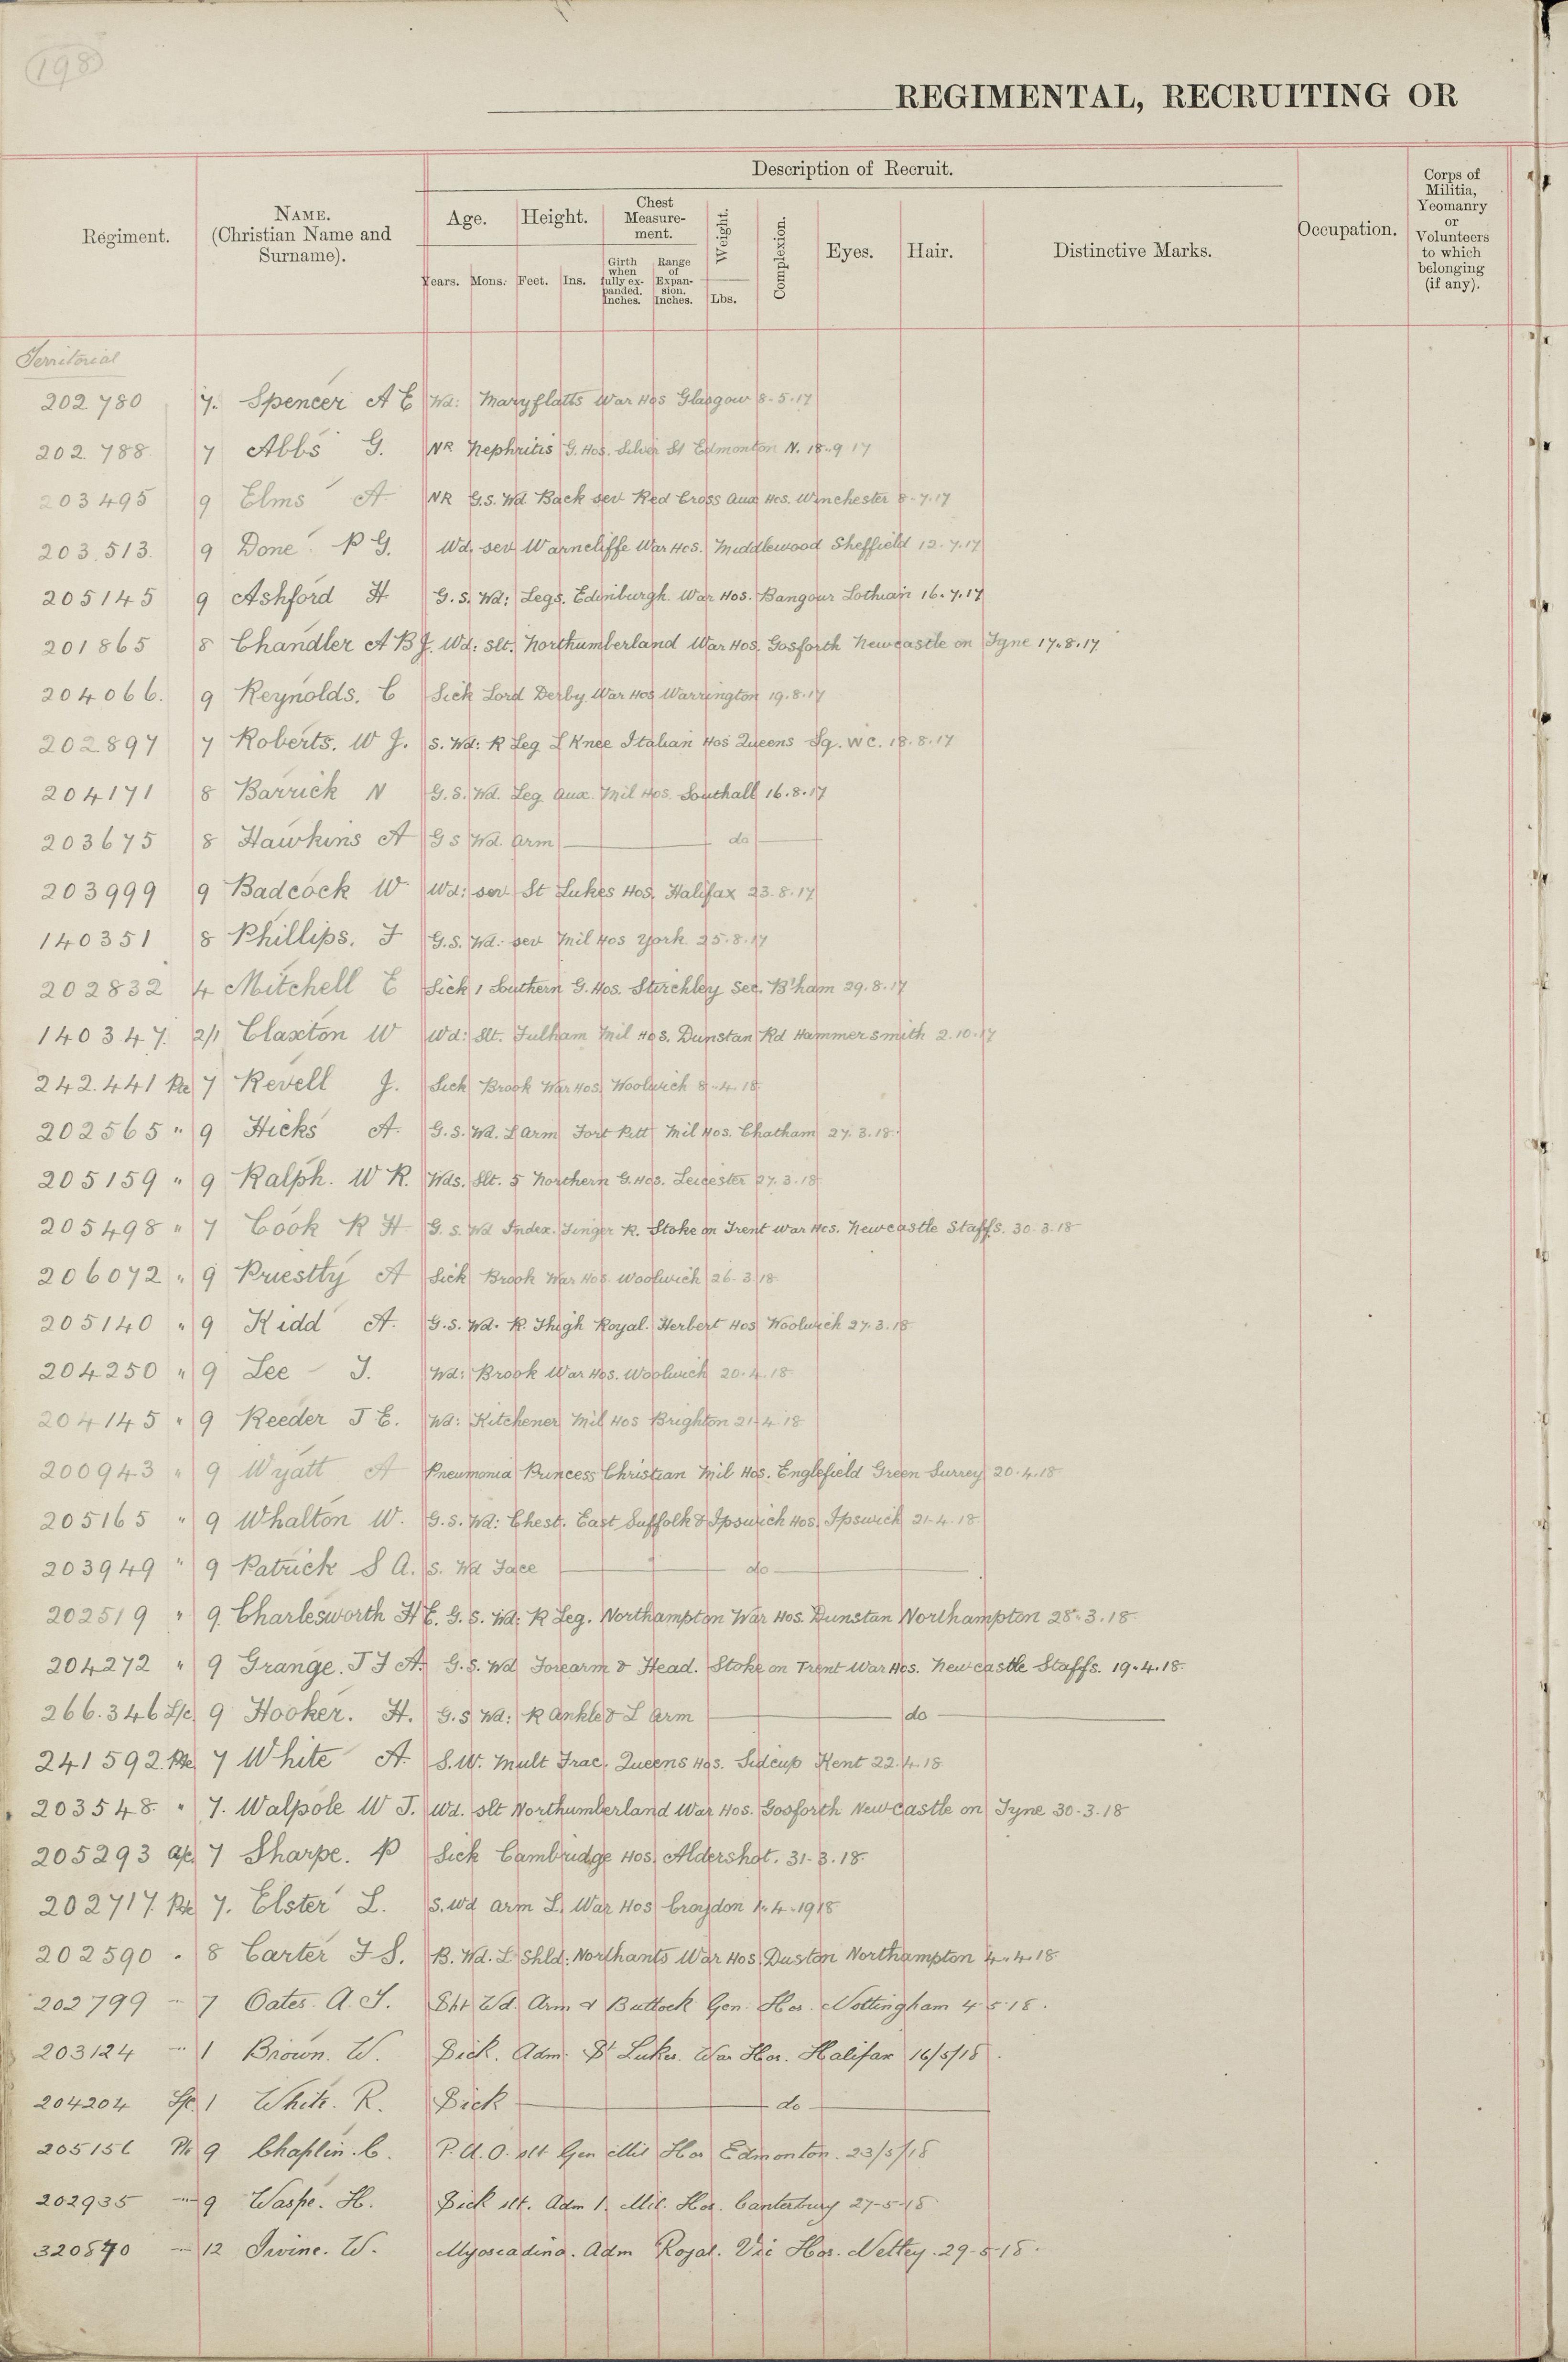 198
REGIMENTAL, RECRUITING OR
Regiment.
NAME.
(Christian Name and
Surname).
Description of Recruit.
Age.
Years. Mons.
Height.
Feet. Ins.
Chest
Measure-
ment.
Girth
when
fully ex-
panded.
Inches.
Range
of
Expan-
sion.
Inches.
Weight.
Lbs.
Complexion.
Eyes.
Hair.
Distinctive Marks.
Occupation.
Corps of
Militia,
Yeomanry
or
Volunteers
to which
belonging
(if any).
Territorial
202780 7. Spencer A E Wd: Maryflatts War Hos Glasgow 8.5.17
202788 7 Abbs G. NR Nephritis G. Hos. Silver St Edmonton N. 18.9.17
203495 9 Elms A NR G.S. Wd. Back sev Red Cross Aux Hos. Winchester 8.7.17
203.513. 9 Done P G. Wd. sev Warncliffe War Hos. Middlewood Sheffield 12.7.17
205145 9 Ashford H G.S. Wd: Legs. Edinburgh War Hos. Bangour Lothian 16.7.17
201865 8 Chandler A B J. Wd: slt. Northumberland War Hos. Gosforth Newcastle on Tyne 17.8.17
204066. 9 Reynolds. C Sick Lord Derby War Hos Warrington 19.8.17
202897 7 Roberts. W J. S. Wd: R Leg L Knee Italian Hos Queens Sq. WC. 18.8.17
204171 8 Barrick N G.S. Wd. Leg Aux. Mil Hos. Southall 16.8.17
203675 8 Hawkins A G S Wd. Arm do
203999 9 Badcock W Wd: sev St Lukes Hos. Halifax 23.8.17
140351 8 Phillips. F G.S. Wd: sev Mil Hos York 25.8.17
202832 4 Mitchell E Sick 1 Southern G. Hos. Stirchley Sec. B'ham 29.8.17
140347. 2/1 Claxton W Wd: Slt. Fulham Mil Hos. Dunstan Rd Hammersmith 2.10.17
242.441 Pte 7 Revell J. Sick Brook War Hos. Woolwich 8.4.18
202565 " 9 Hicks A. G.S. Wd. L Arm Fort Pitt Mil Hos. Chatham 27.3.18.
205159 " 9 Ralph. W R. Wds. Slt. 5 Northern G. Hos. Leicester 27.3.18
205498 " 7 Cook R H G.S. Wd Index. Finger R. Stoke on Trent War Hos. Newcastle Staffs. 30.3.18
206072 " 9 Priestly A Sick Brook War Hos Woolwich 26.3.18
205140 " 9 Kidd A. G.S. Wd. R. Thigh Royal. Herbert Hos Woolwich 27.3.18
204250 " 9 Lee J. Wd: Brook War Hos. Woolwich 20.4.18
204145 " 9 Reeder J E. Wd: Kitchener Mil Hos Brighton 21.4.18
200943 " 9 Wyatt A Pneumonia Princess Christian Mil Hos. Englefield Green Surrey 20.4.18
205165 " 9 Whalton W. G.S. Wd: Chest. East Suffolk & Ipswich Hos. Ipswich 21.4.18
203949 " 9 Patrick S A. S. Wd Face do
202519 " 9. Charlesworth H E. G.S. Wd: R Leg. Northampton War Hos. Dunstan Northampton 28.3.18
204272 " 9 Grange. J F A. G.S. Wd Forearm & Head. Stoke on Trent War Hos. Newcastle Staffs. 19.4.18.
266.346 L/c. 9 Hooker. H. G.S Wd: R Ankle & L Arm do
241592. Pte 7 White A. S.W. Mult Frac. Queens Hos. Sidcup Kent 22.4.18
203548. " 7. Walpole W J. Wd. slt Northumberland War Hos. Gosforth Newcastle on Tyne 30.3.18
205293 A/c. 7 Sharpe. P Sick Cambridge Hos. Aldershot. 31.3.18.
202717. Pte 7. Elster L. S. Wd Arm L. War Hos Croydon 1.4.1918
202590 " 8 Carter F S. B. Wd. L Shld: Northants War Hos. Duston Northampton 4.4.18
202799 " 7 Oates. A. J. Sht Wd Arm & Buttock Gen Hos. Nottingham 4.5.18.
203124 " 1 Brown. W. Sick. Adm. St Lukes. War Hos. Halifax 16/5/18.
204204 1 White. R. Sick do
205156 Pte 9 Chaplin. C. P.U.O. slt Gen Mil Hos Edmonton. 23/5/18
202935 " 9 Waspe. H. Sick slt. Adm 1. Mil. Hos. Canterbury 27-5-18
320870 " 12 Irvine. W. Adm Royal. Vic Hos. Netley. 29-5-18.